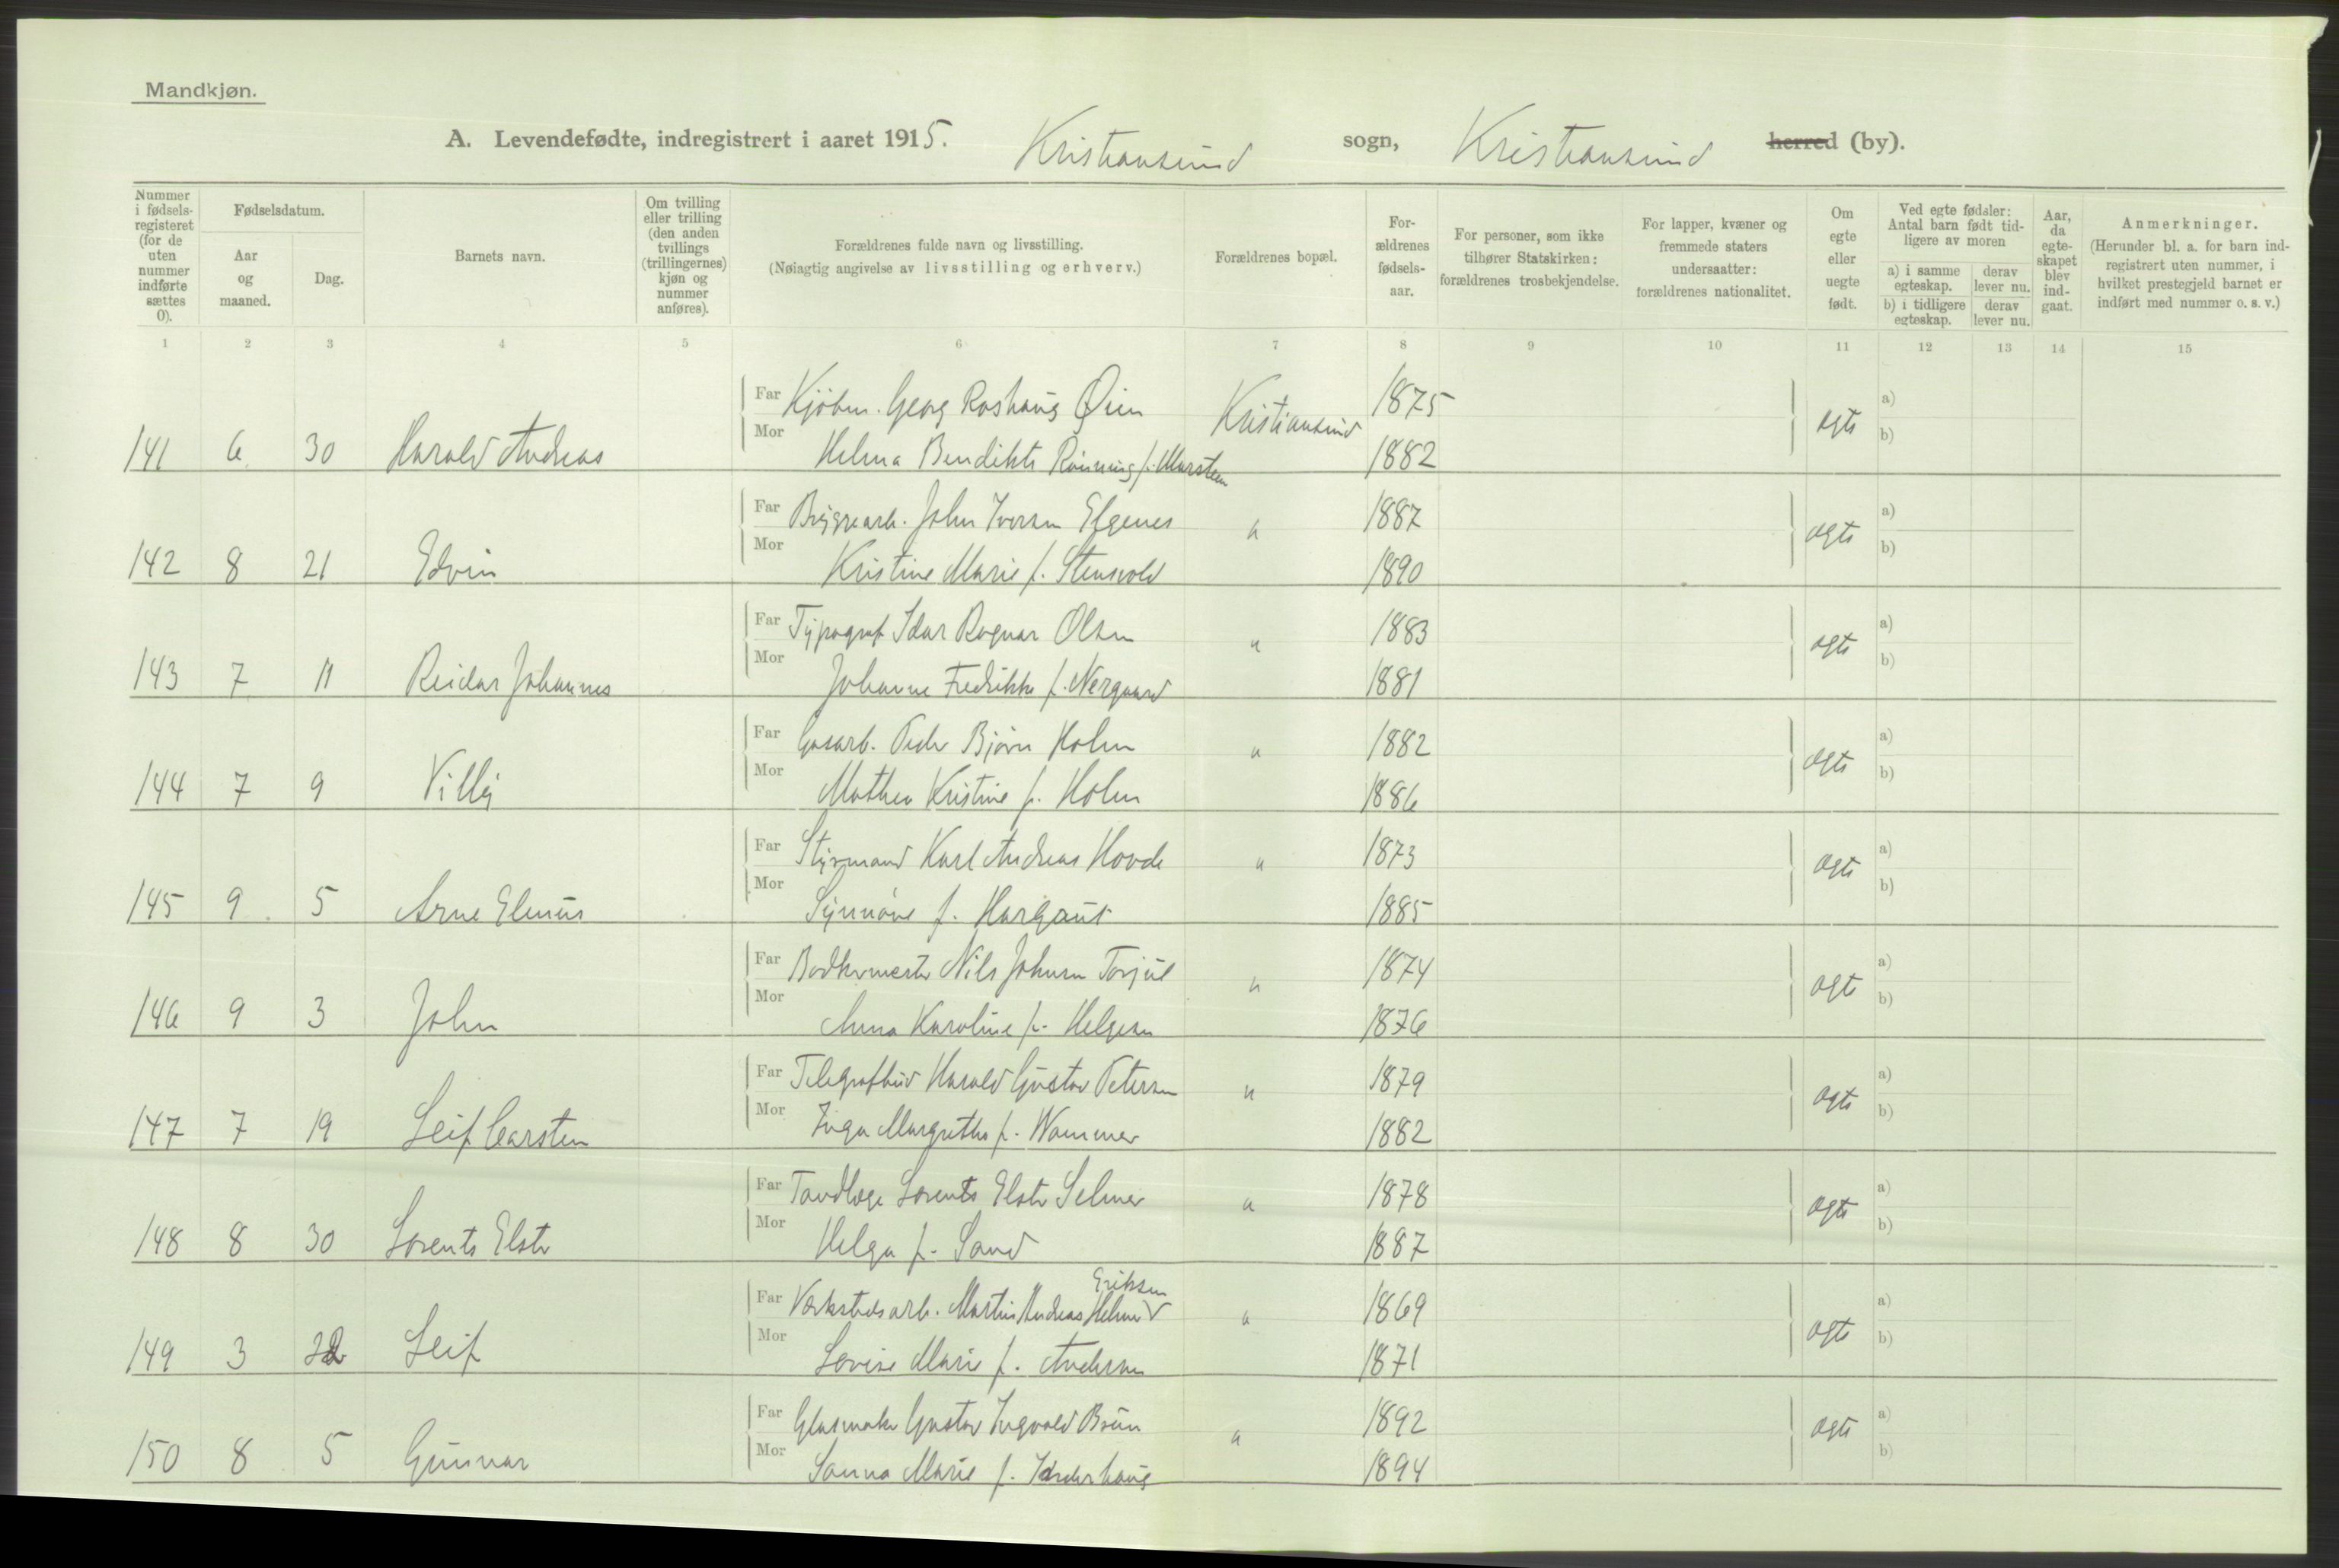 Mandkjøn.
A. Levendefødte, indregistrert i aaret 1915. Kristiansund sogn, Kristiansund herred (by).
Nummer i fødselsregisteret (for de uten nummer indførte sættes 0).
Fødselsdatum.
Aar og maaned.
Dag.
Barnets navn.
Om tvilling eller trilling (den anden tvillings (trillingernes) kjøn og nummer anføres).
Forældrenes fulde navn og livsstilling.
(Nøiagtig angivelse av livsstilling og erhverv.)
Forældrenes bopæl.
For-ældrenes fødsels-aar.
For personer, som ikke tilhører Statskirken: forældrenes trosbekjendelse.
For lapper, kvæner og fremmede staters undersaatter: forældrenes nationalitet.
Om egte eller uegte født.
Ved egte fødsler: Antal barn født tidligere av moren
a) i samme egteskap. derav lever nu.
b) i tidligere egteskap. derav lever nu.
Aar, da egte-skapet blev ind-gaat.
Anmerkninger.
(Herunder bl. a. for barn ind-registrert uten nummer, i hvilket prestegjeld barnet er indført med nummer o. s. v.)
1 2 3 4 5 6 7 8 9 10 11 12 13 14 15
Far Kjöbm. Georg Roshaug Øien Kristiansund 1875 egte a)
141 6 30 Harald Andreas Mor Helma Bendikte Rönning f. Marstein 1882 b)
Far Bryggearb. John Iversen Elgenes " 1887 egte a)
142 8 21 Edvin Mor Kristine Marie f. Stensvold 1890 b)
Far Typograf Idar Ragnar Olsen " 1883 egte a)
143 7 11 Reidar Johannes Mor Johanne Fredrikke f. Nergaard 1881 b)
Far Gasarb. Peder Bjørn Holm " 1882 egte a)
144 7 9 Villy Mor Mathea Kristine f. Holm 1886 b)
Far Styrmand Karl Andreas Hovde " 1873 egte a)
145 9 5 Arne Elenus Mor Synnöve f. Hargaut 1885 b)
Far Bødkermester Nils Johnsen Torjul " 1874 egte a)
146 9 3 John Mor Anna Karoline f. Helgesen 1876 b)
Far Telegrafbud Harald Gustav Petersen " 1879 egte a)
147 7 19 Leif Carsten Mor Inga Margrethe f. Wammer 1882 b)
Far Tandlæge Lorents Elster Selmer " 1878 egte a)
148 8 30 Lorents Elster Mor Helga f. Sand 1887 b)
Eriksen
Far Verkstedsarb. Martin Andreas Helmer " 1869 egte a)
149 3 Leif Mor Lovise Marie f. Andersen 1871 b)
Far Glasmaker Gustav Ingvald Bruun " 1892 egte a)
150 8 5 Gunnar Mor Sanna Marie f. Inderhaug 1894 b)